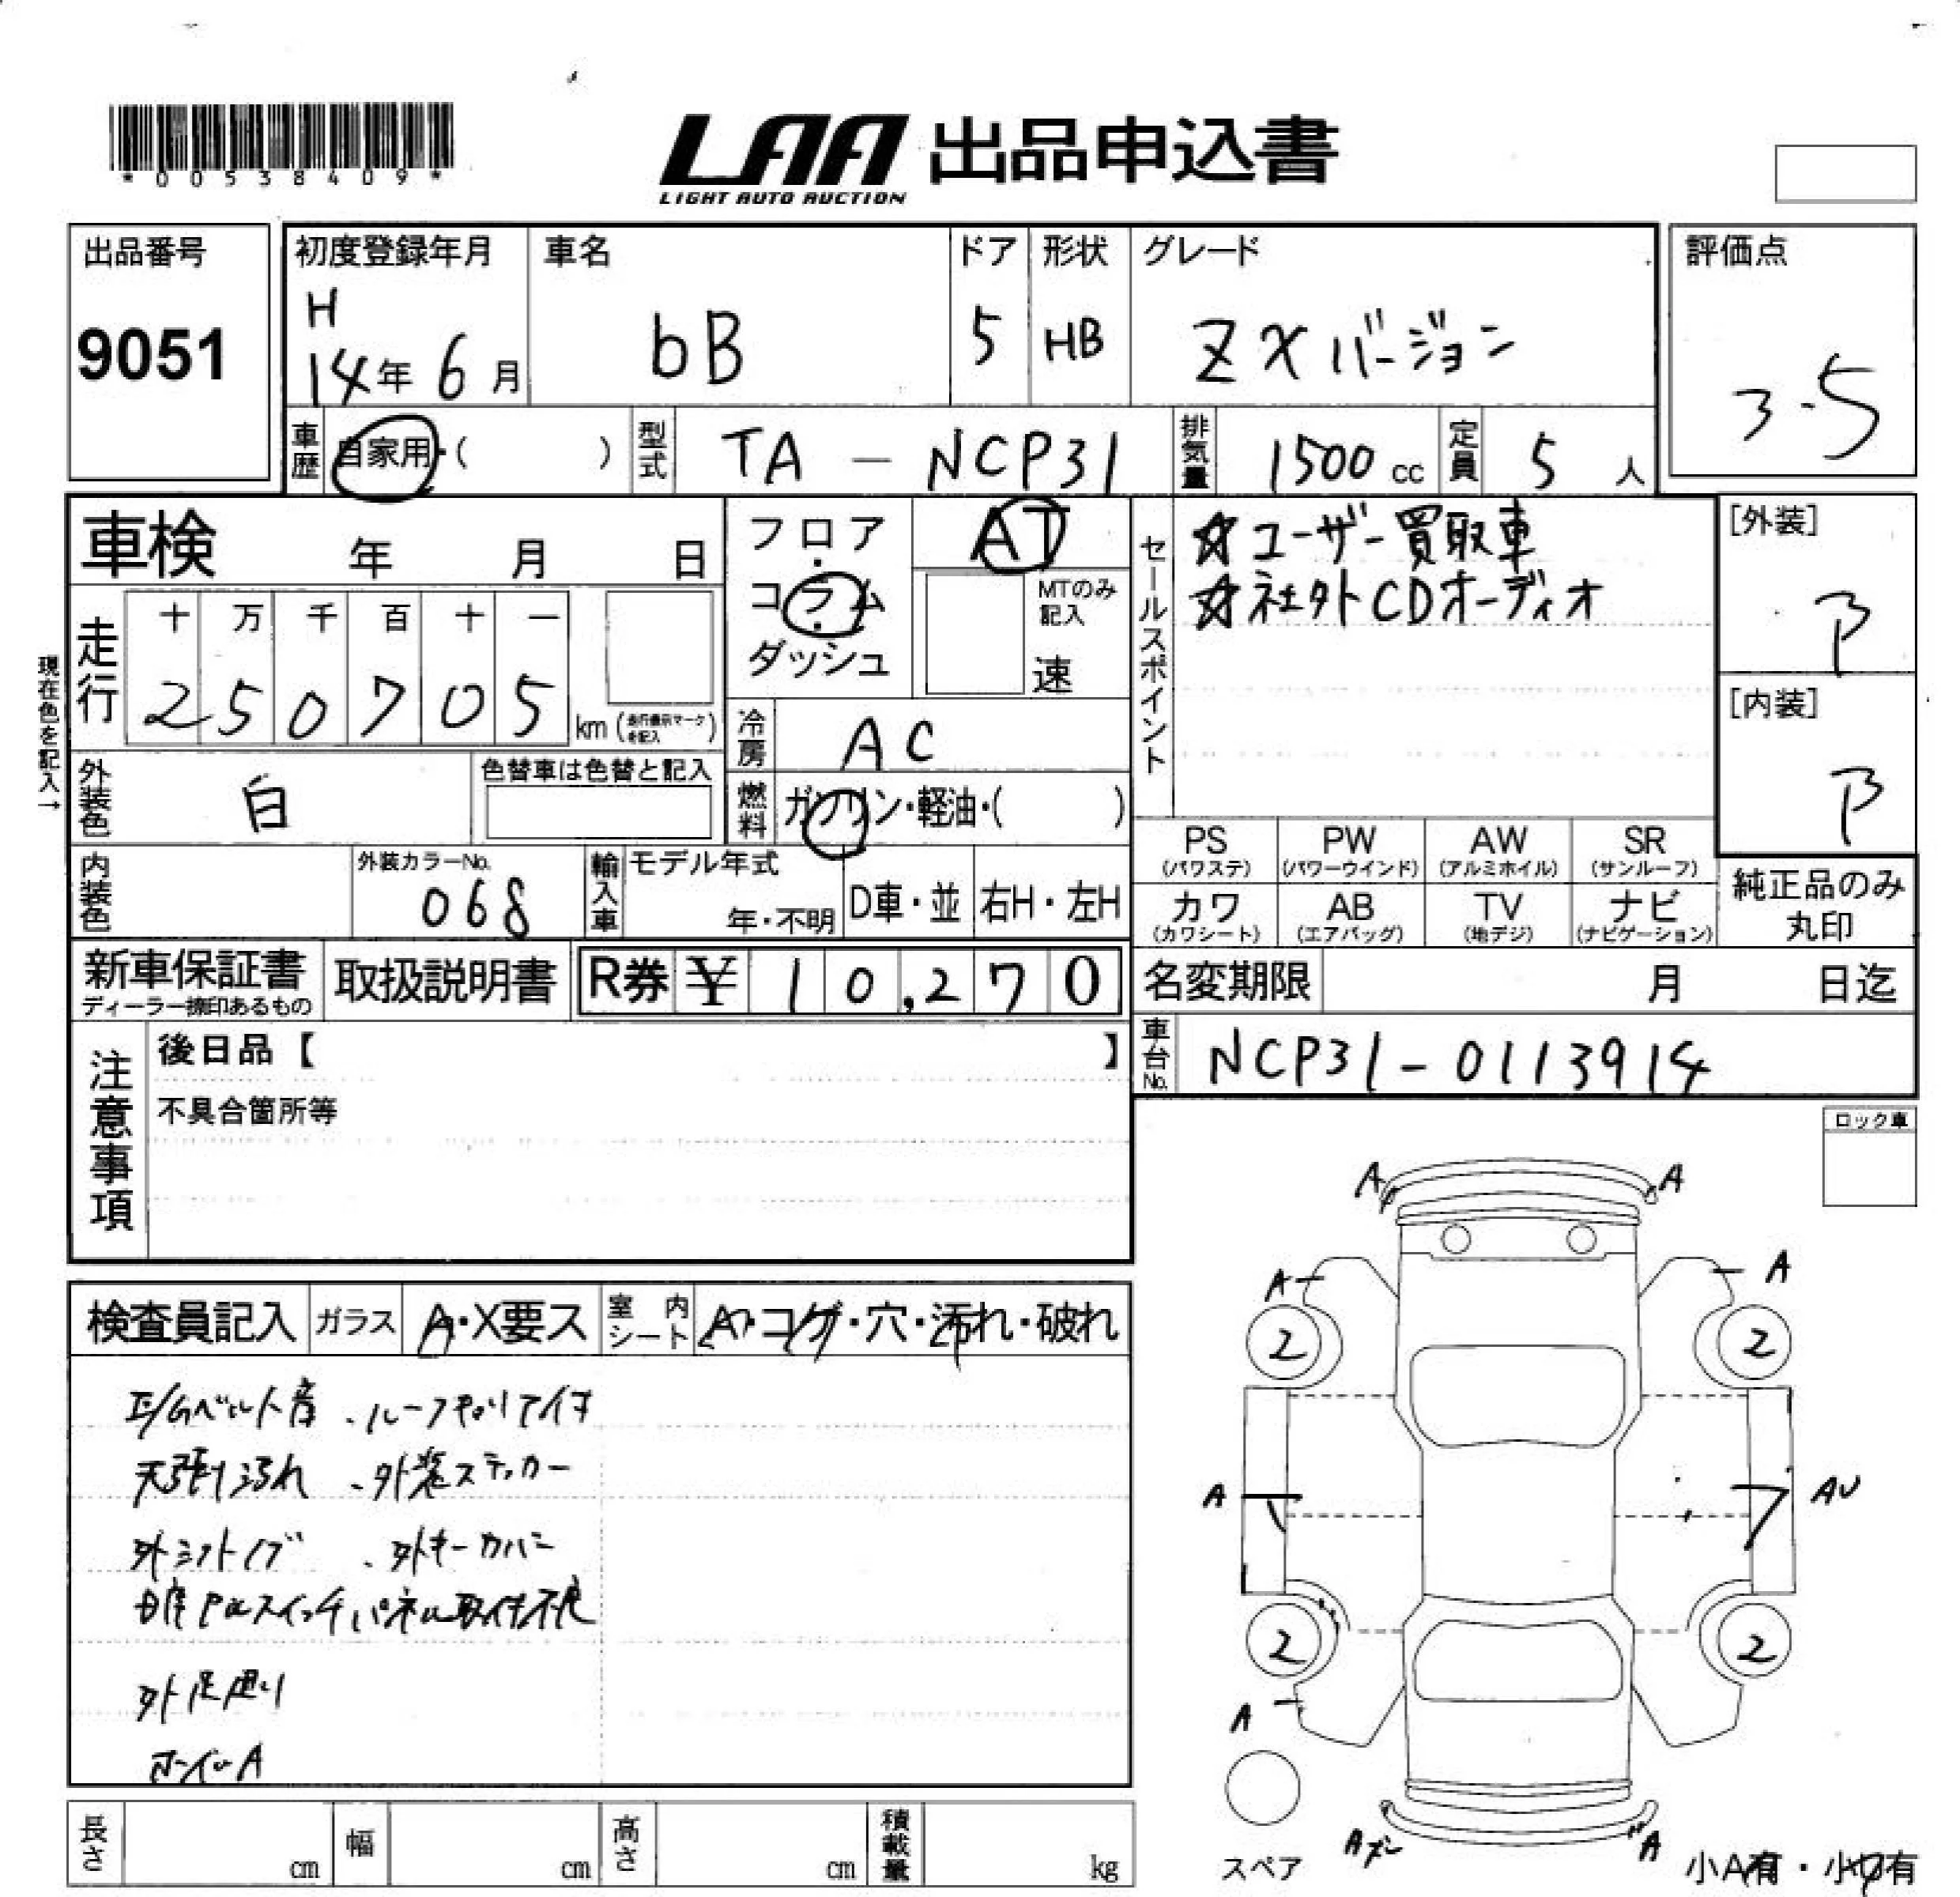 *00538409*
LAA 出品申込書
LIGHT AUTO AUCTION
出品番号
9051
初度登録年月
H
14年 6月
車名
bB
ドア
5
形状
HB
グレード
ZXバージョン
評価点
3.5
車歴 自家用・( )
型式 TA - NCP31
排気量 1500 cc
定員 5 人
車検 年 月 日
フロア・コラム・ダッシュ
AT
MTのみ記入
速
セールスポイント
☆ユーザー買取車
☆社外CDオーディオ
[外装]
B
[内装]
B
現在色を記入→
走行
十 万 千 百 十 一
2 5 0 7 0 5 km (走行表示マークを記入)
冷房 AC
燃料 ガソリン・軽油・( )
外装色 白
色替車は色替と記入
内装色
外装カラーNo.
068
輸入車
モデル年式
年・不明
D車・並
右H・左H
PS (パワステ)
PW (パワーウインド)
AW (アルミホイル)
SR (サンルーフ)
カワ (カワシート)
AB (エアバッグ)
TV (地デジ)
ナビ (ナビゲーション)
純正品のみ丸印
新車保証書
ディーラー捺印あるもの
取扱説明書
R券 ¥ 10,270
名変期限 月 日迄
車台No. NCP31-0113914
注意事項
後日品【 】
不具合箇所等
ロック車
検査員記入
ガラス A・X要ス
室内シート A・コゲ・穴・汚れ・破れ
E/Gベルト音 、ルーフキャリア付
天張り汚れ 、外装ステッカー
外シフトノブ 、外キーカバー
スイッチパネル取付不良
外足廻り
ホイルA
A A
A A
2 2
A AU
2 2
A
スペア
A A
小A有・小U有
長さ cm
幅 cm
高さ cm
積載量 kg